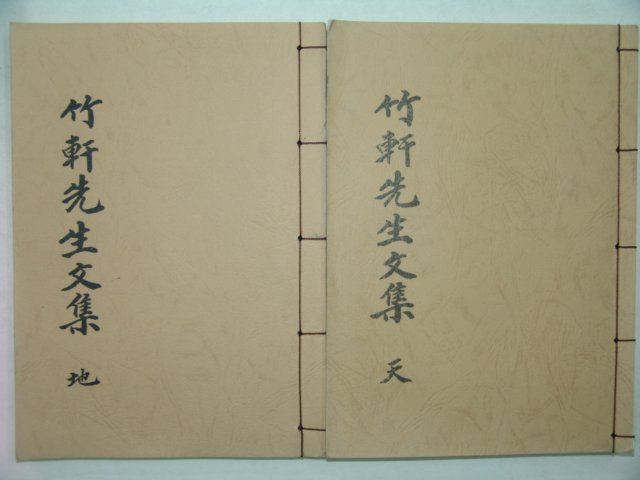 竹軒先生文集 天
竹軒先生文集 地